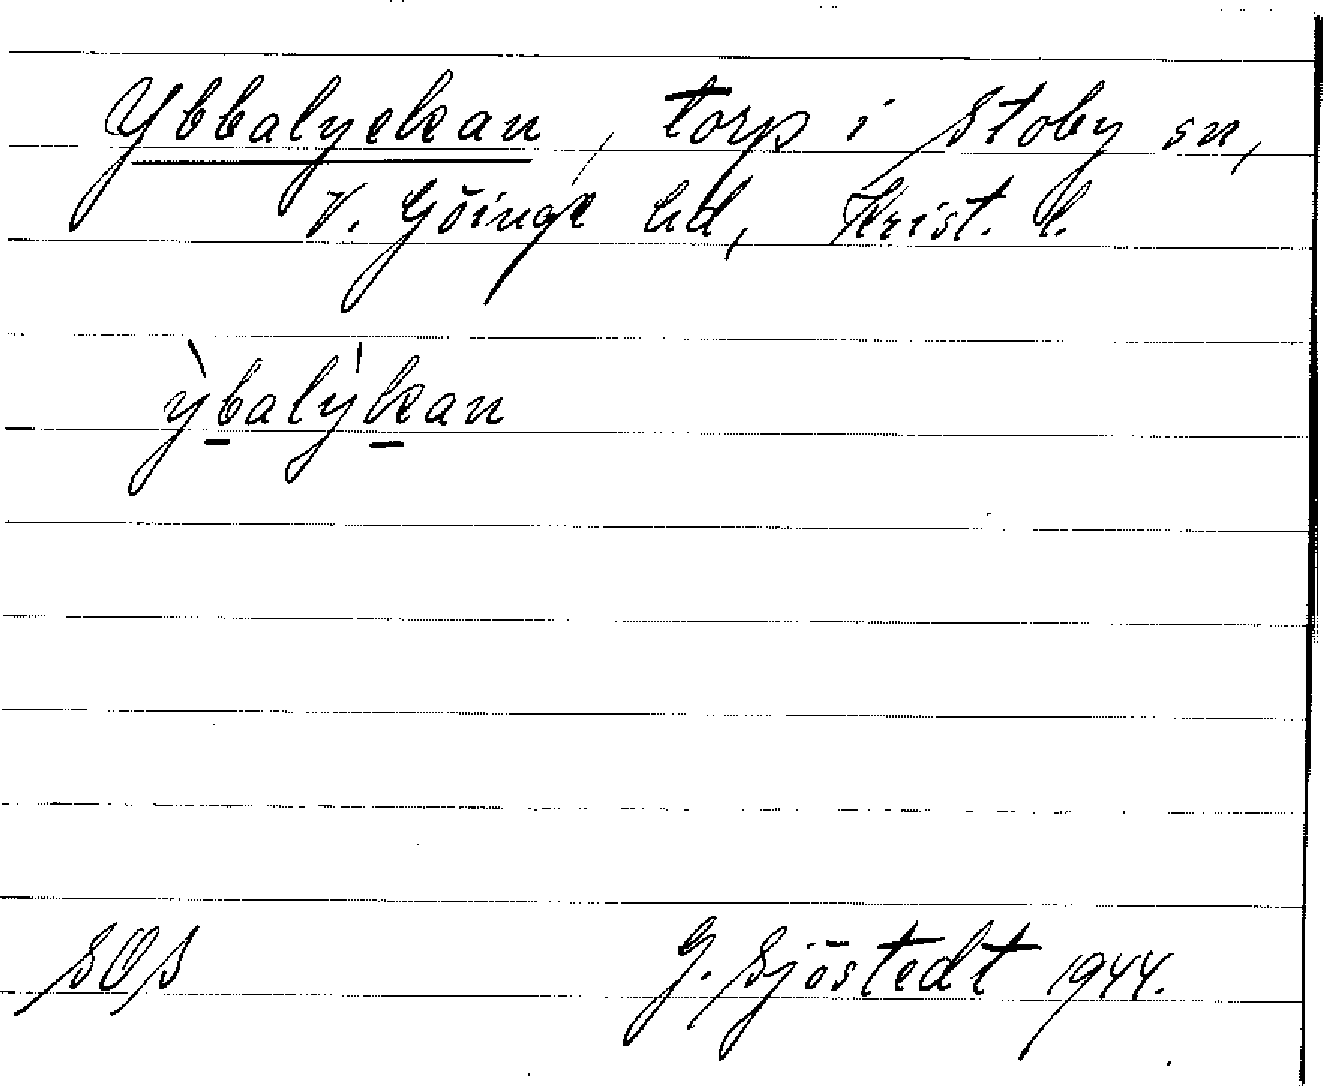 Ybbalyckan, torp i Stoby sn,
V. Göinge hd, Krist. l.
ỳbalýkan
SOS G. Sjöstedt 1944.